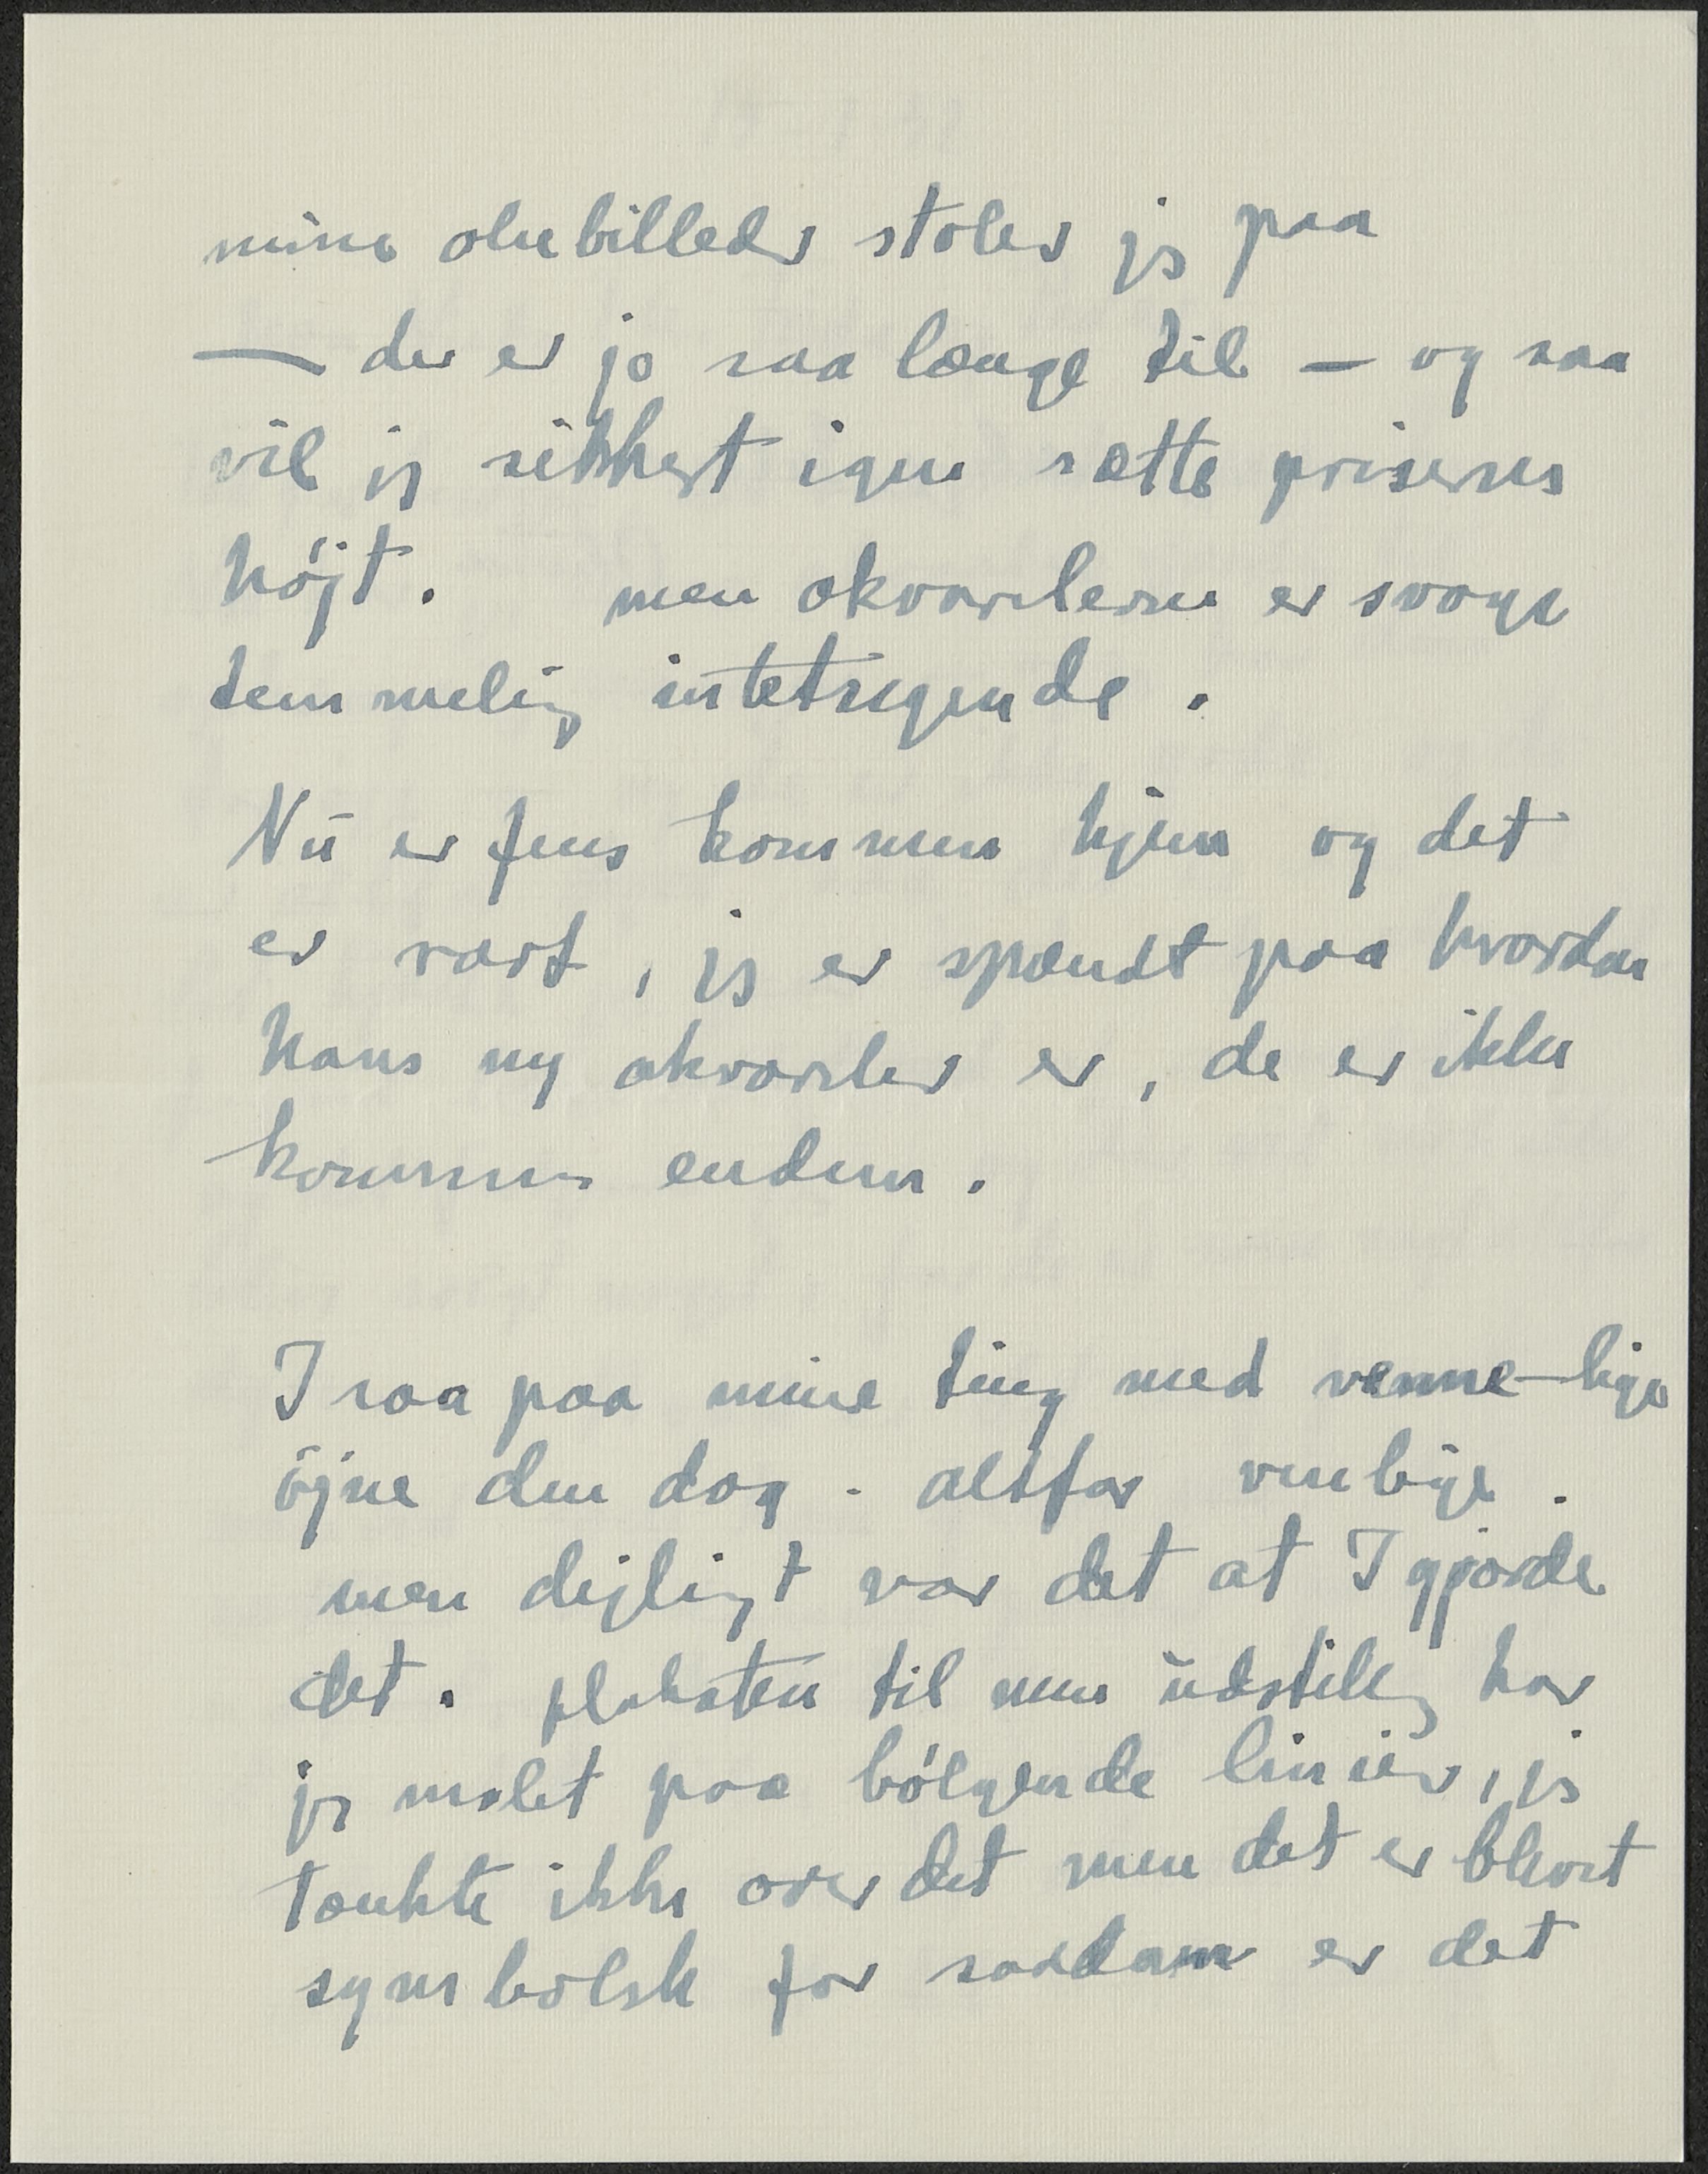 mine oliebilleder stoler jeg paa
— der er jo saa længe til — og saa
vil jeg sikkert igen sætte priserne
højt. men akvarelerne er svage
temmelig intetsigende.
Nu er Jens kommen hjem og det
er rart, jeg er spændt paa hvordan
hans ny akvareler er, de er ikke
kommen endnu.
I saa paa mine ting med venne-lige
øjne den dag. altfor venlige.
men dejligt var det at I gjorde
det. plakaten til min udstilling har
jeg malet paa bølgende linier, jeg
tænkte ikke over det men det er blevet
symbolsk for saadan er det